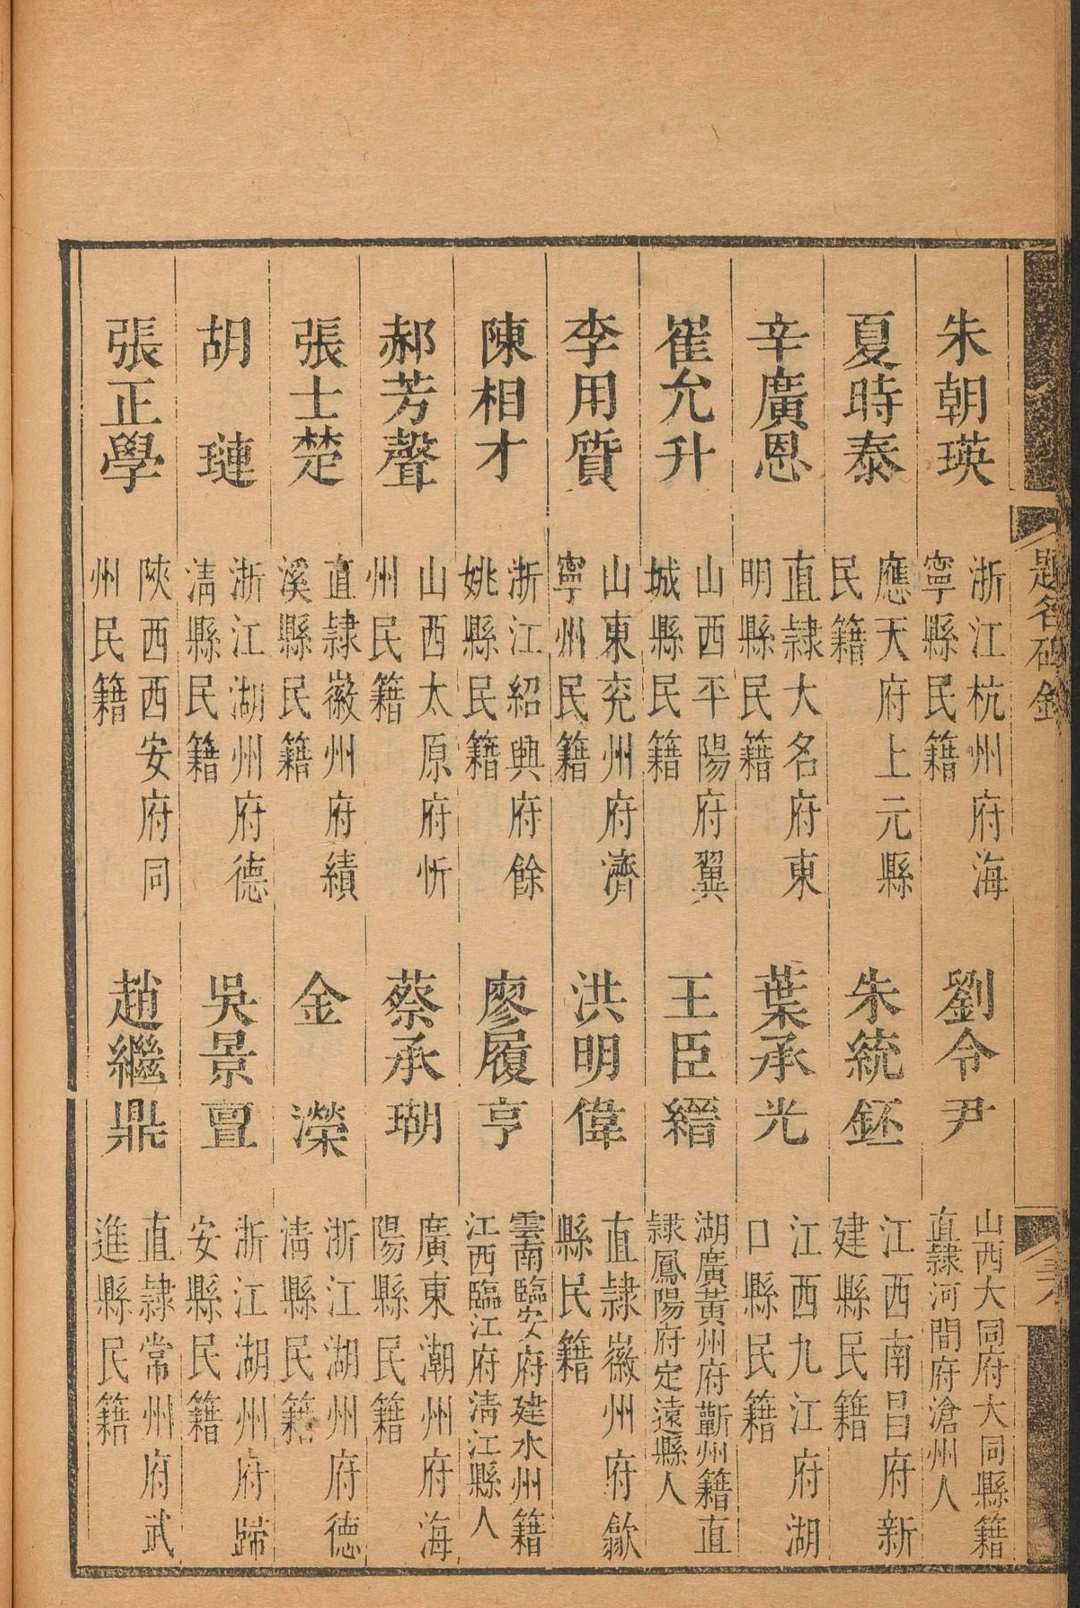 題名碑錄
朱朝瑛
浙江杭州府海
寧縣民籍
劉令尹
山西大同府大同縣籍
直隸河間府滄州人
夏時泰
應天府上元縣
民籍
朱統鉟
江西南昌府新
建縣民籍
辛廣恩
直隸大名府東
明縣民籍
葉承光
江西九江府湖
口縣民籍
崔允升
山西平陽府翼
城縣民籍
王臣縉
湖廣黃州府蘄州籍直
隸鳳陽府定遠縣人
李用質
山東兖州府濟
寧州民籍
洪明偉
直隸徽州府歙
縣民籍
陳相才
浙江紹興府餘
姚縣民籍
廖履亨
雲南臨安府建水州籍
江西臨江府清江縣人
郝芳聲
山西太原府忻
州民籍
蔡承瑚
廣東潮州府海
陽縣民籍
張士楚
直隸徽州府績
溪縣民籍
金濚
浙江湖州府德
清縣民籍
胡璉
浙江湖州府德
清縣民籍
吳景亶
浙江湖州府歸
安縣民籍
張正學
陝西西安府同
州民籍
趙繼鼎
直隸常州府武
進縣民籍